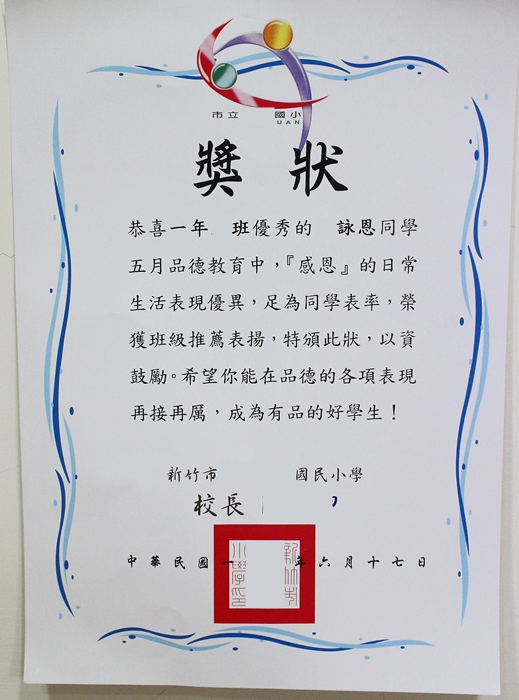 市立 國小
UAN
獎狀
恭喜一年 班優秀的 詠恩同學
五月品德教育中，『感恩』的日常
生活表現優異，足為同學表率，榮
獲班級推薦表揚，特頒此狀，以資
鼓勵。希望你能在品德的各項表現
再接再厲，成為有品的好學生！
新竹市 國民小學
校長
中華民國一 年六月十七日
新竹市
小學印